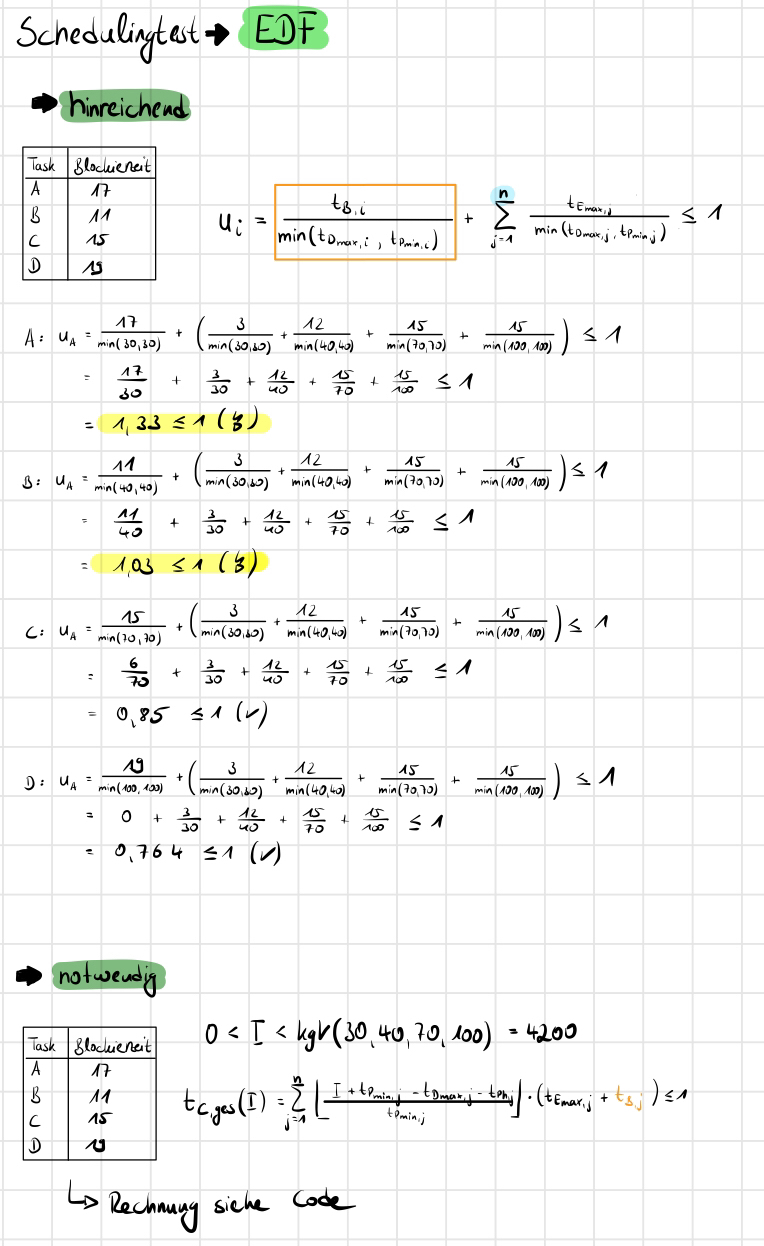 Schedulingtest → EDF
→ hinreichend
Task | Blockierzeit
A | 17
B | 11
C | 15
D | 19
u_i = t_B,i / min(t_Dmax,i , t_Pmin,i) + Σ_{j=1}^{n} t_Emax,j / min(t_Dmax,j, t_Pmin,j) ≤ 1
A: u_A = 17/min(30,30) + ( 3/min(30,30) + 12/min(40,40) + 15/min(70,70) + 15/min(100,100) ) ≤ 1
= 17/30 + 3/30 + 12/40 + 15/70 + 15/100 ≤ 1
= 1,33 ≤ 1 (↯)
B: u_A = 11/min(40,40) + ( 3/min(30,30) + 12/min(40,40) + 15/min(70,70) + 15/min(100,100) ) ≤ 1
= 11/40 + 3/30 + 12/40 + 15/70 + 15/100 ≤ 1
= 1,03 ≤ 1 (↯)
C: u_A = 15/min(70,70) + ( 3/min(30,30) + 12/min(40,40) + 15/min(70,70) + 15/min(100,100) ) ≤ 1
= 6/70 + 3/30 + 12/40 + 15/70 + 15/100 ≤ 1
= 0,85 ≤ 1 (✓)
D: u_A = 19/min(100,100) + ( 3/min(30,30) + 12/min(40,40) + 15/min(70,70) + 15/min(100,100) ) ≤ 1
= 0 + 3/30 + 12/40 + 15/70 + 15/100 ≤ 1
= 0,764 ≤ 1 (✓)
→ notwendig
Task | Blockierzeit
A | 17
B | 11
C | 15
D | 19
0 < I < kgV(30,40,70,100) = 4200
t_C,ges(I) = Σ_{j=1}^{n} ⌊ (I + t_Pmin,j - t_Dmax,j - t_Ph,j) / t_Pmin,j ⌋ · (t_Emax,j + t_B,j) ≤ 1
↳ Rechnung siehe Code